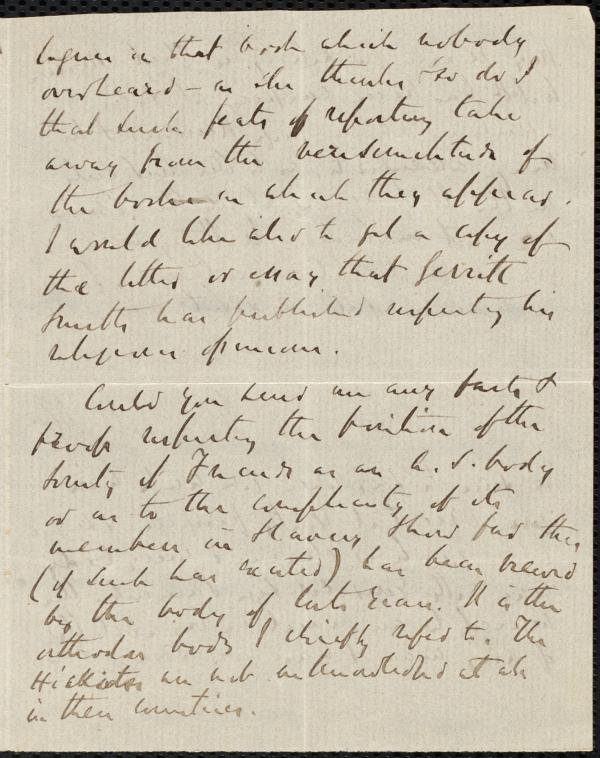 logues in that book which nobody
overheard – as she thinks so do I
that such feats of reporting take
away from the verisimilitude of
the books in which they appear.
I would like also to get a copy of
the letter or essay that Gerritt
Smith has published respecting his
religious opinions.
Could you send me any facts &
proofs respecting the position of the
Society of Friends as an A. S. body
or as to the complicity of its
members in Slavery & how far this
(if such has existed) has been viewed
by the body of late years. It is the
orthodox body I chiefly refer to. The
Hicksites are not acknowledged at all
in these countries.